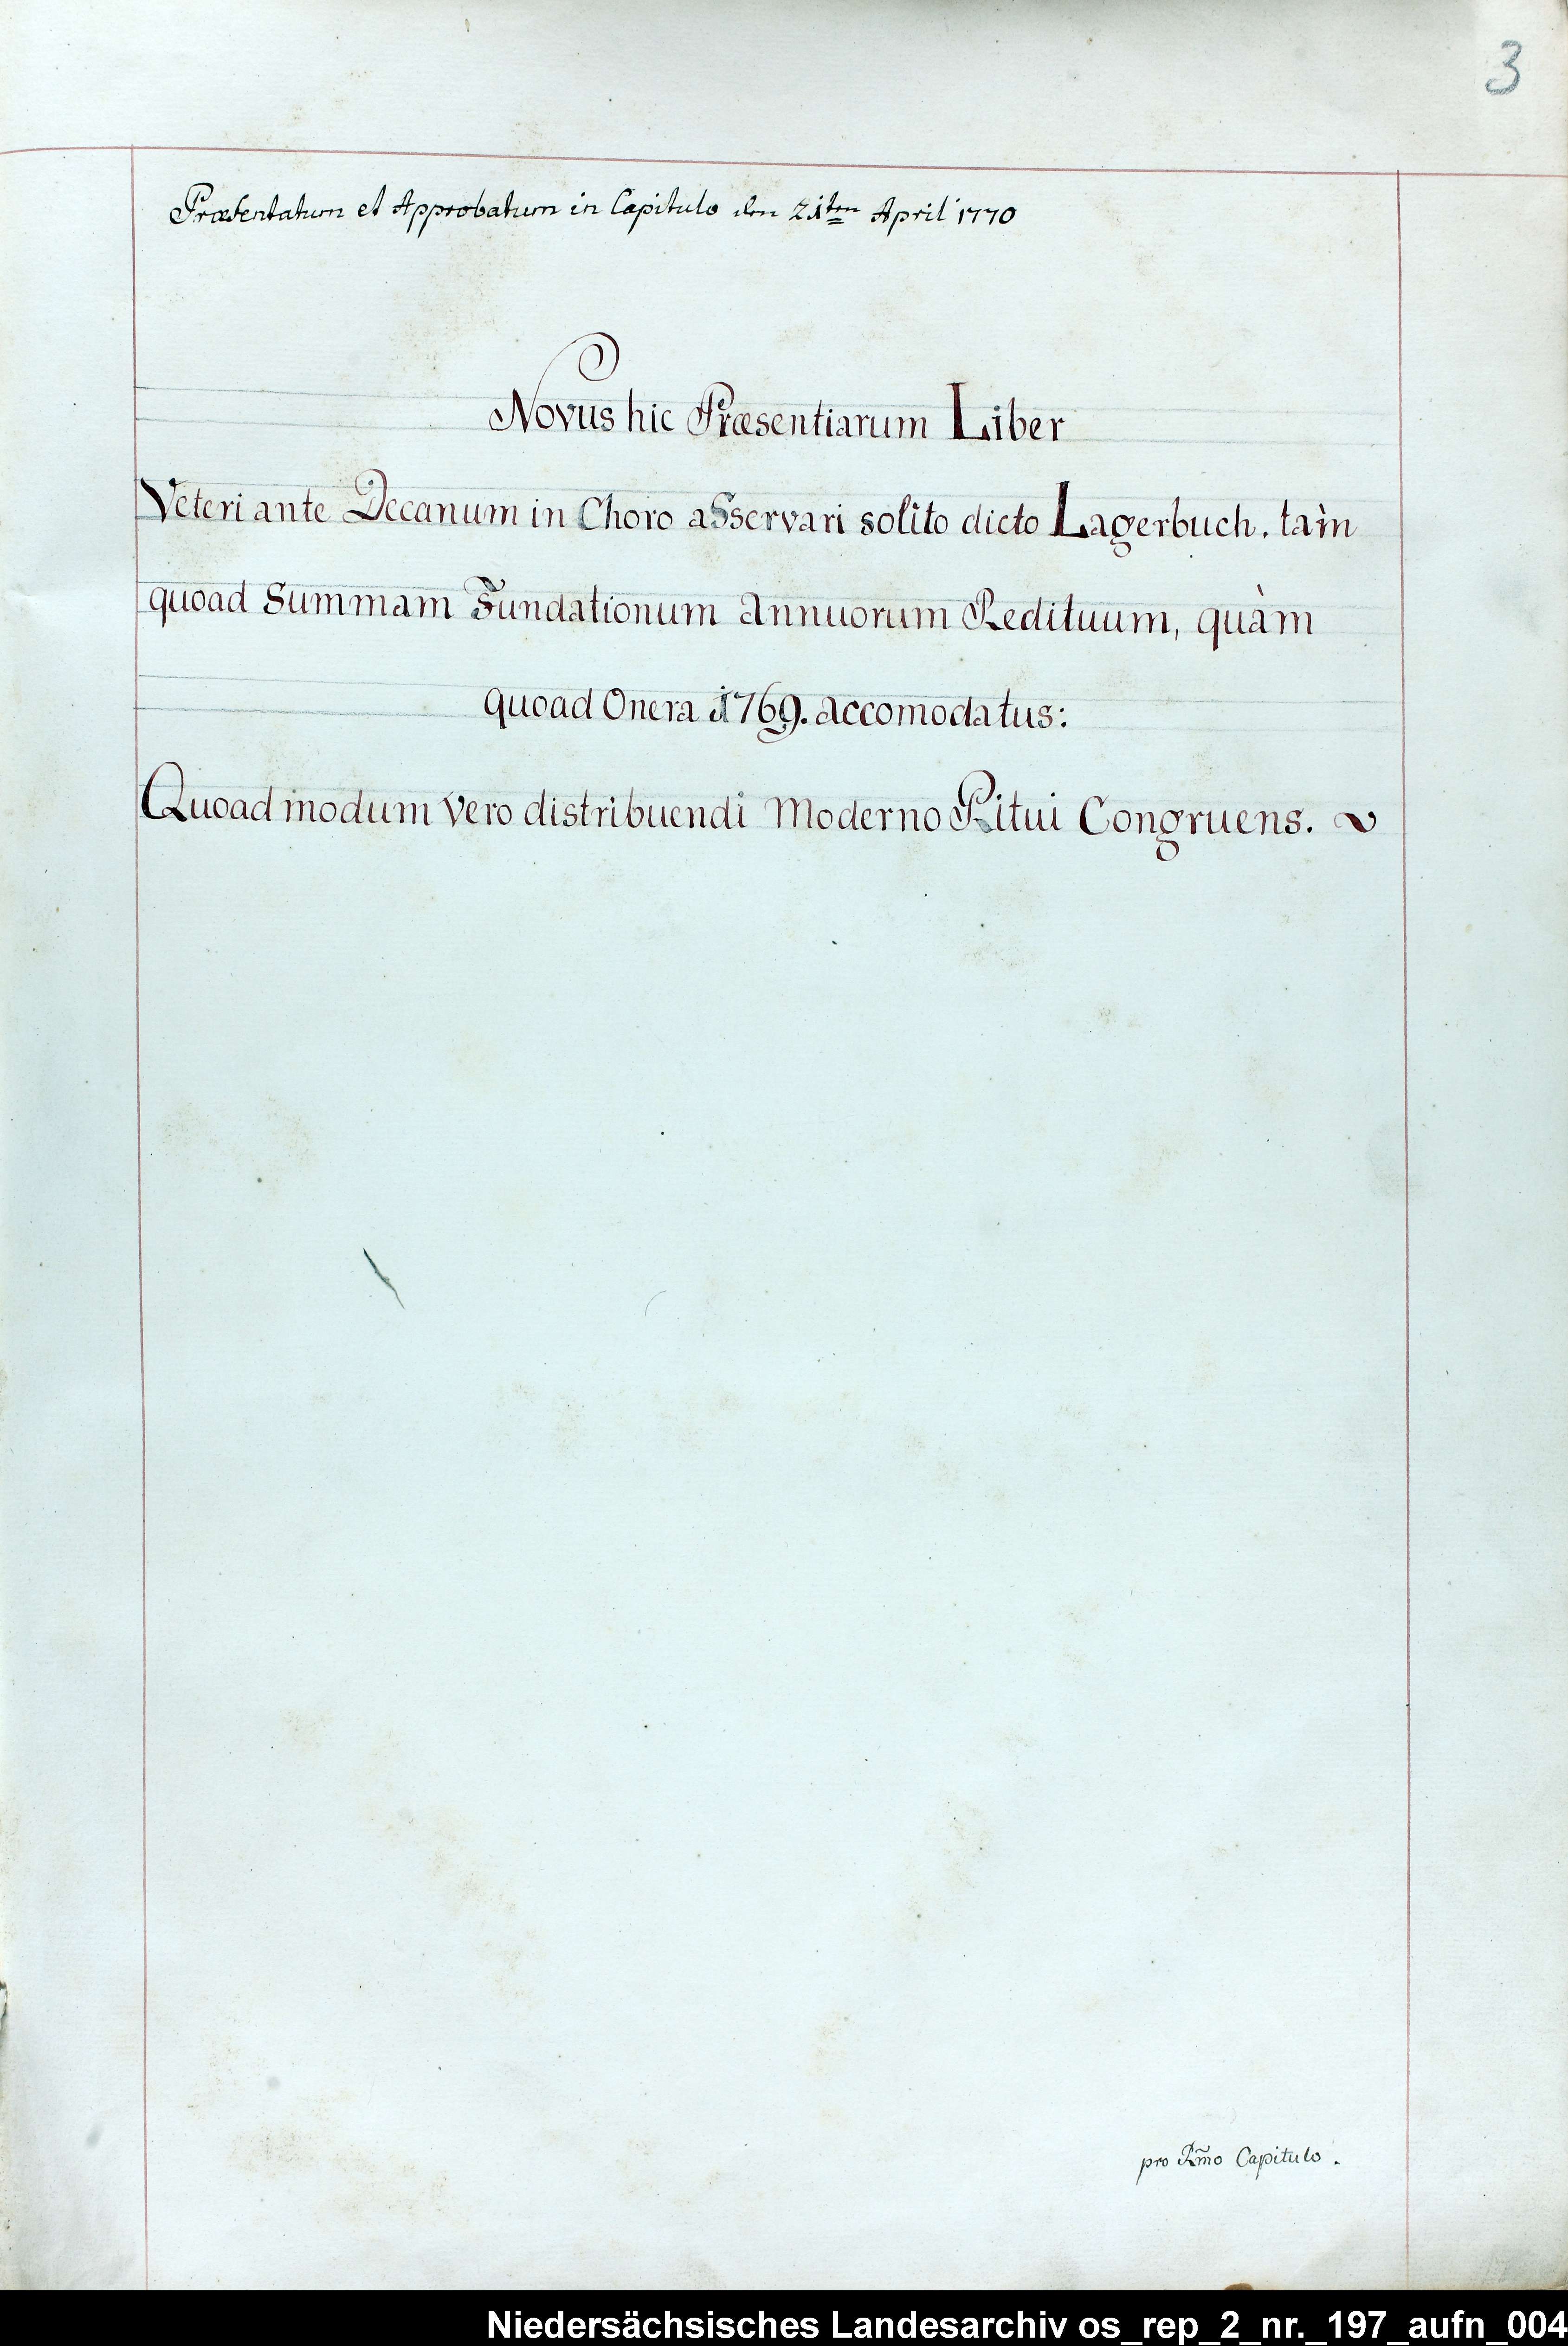 3
Præsentatum et Approbatum in Capitulo den 21ten April 1770
Novus hic Præsentiarum Liber
Veteri ante Decanum in Choro asservari solito dicto Lagerbuch. tàm
quoad Summam Fundationum Annuorum Redituum, quàm
quoad Onera 1769. accomodatus:
Quoad modum vero distribuendi Moderno Ritui Congruens.
pro Rm̃o Capitulo.
Niedersächsisches Landesarchiv os_rep_2_nr._197_aufn_004